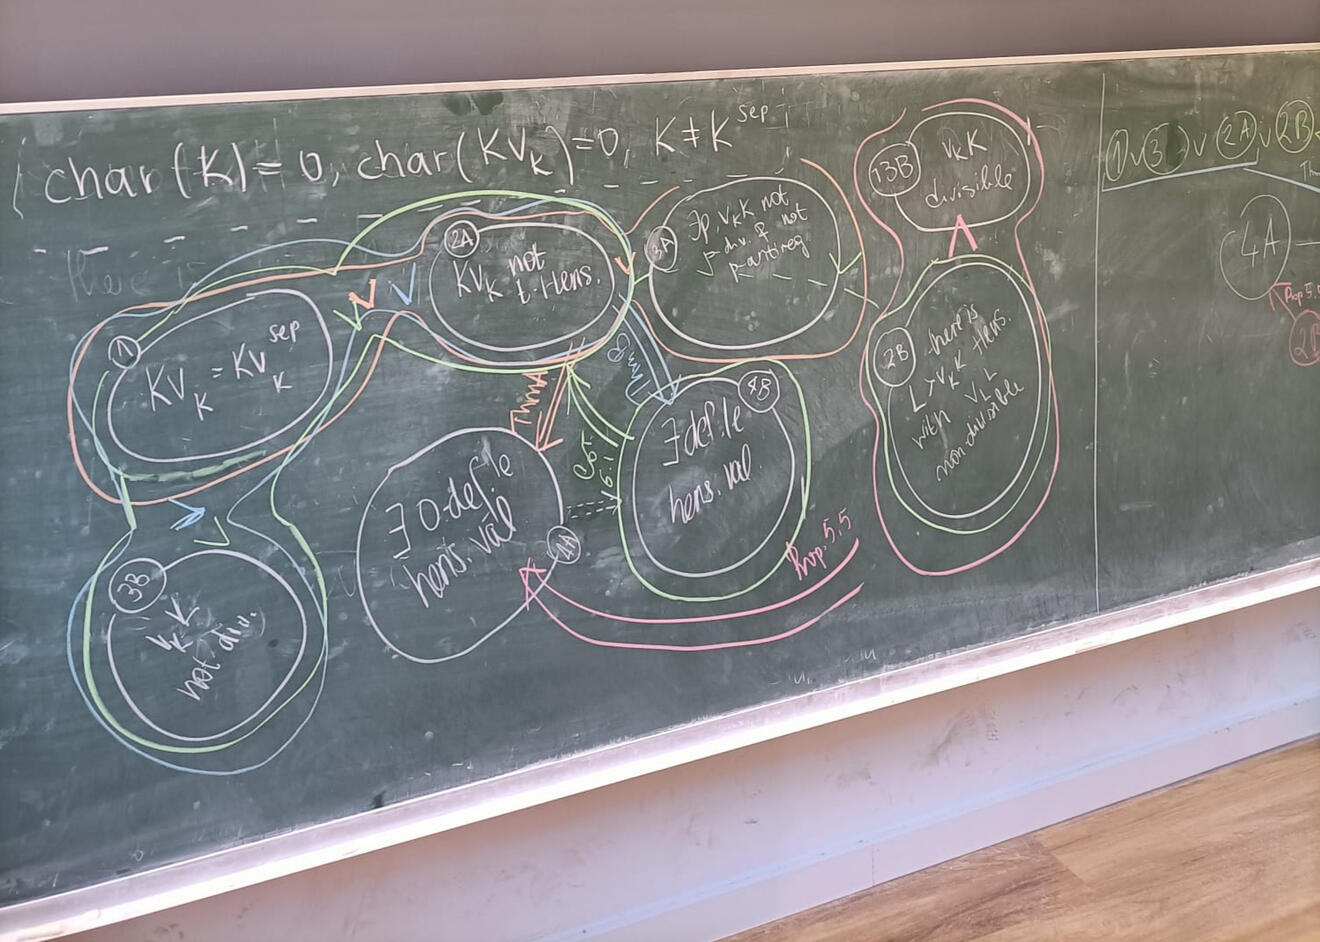 char(K) = 0, char(Kv_K) = 0, K ≠ K^sep
there is
1 ∨ 3 ∨ 2A ∨ 2B
1
Kv_K = Kv_K^sep
∨
∨
∨
2A
Kv_K not
t-Hens.
3A
∃p, v_K K not
p-div. & not
p-antireg
13B
v_K K
divisible
∧
2B
there is
L ≻ v_K K Hens.
with v_L L
non-divisible
Thm A
Thm B
Cor
6.1
∃ 0-def.le
hens. val
4A
4B
∃ def.le
hens. val.
Prop. 5.5
∨
3B
v_K K
not div.
4A
Prop 5.5